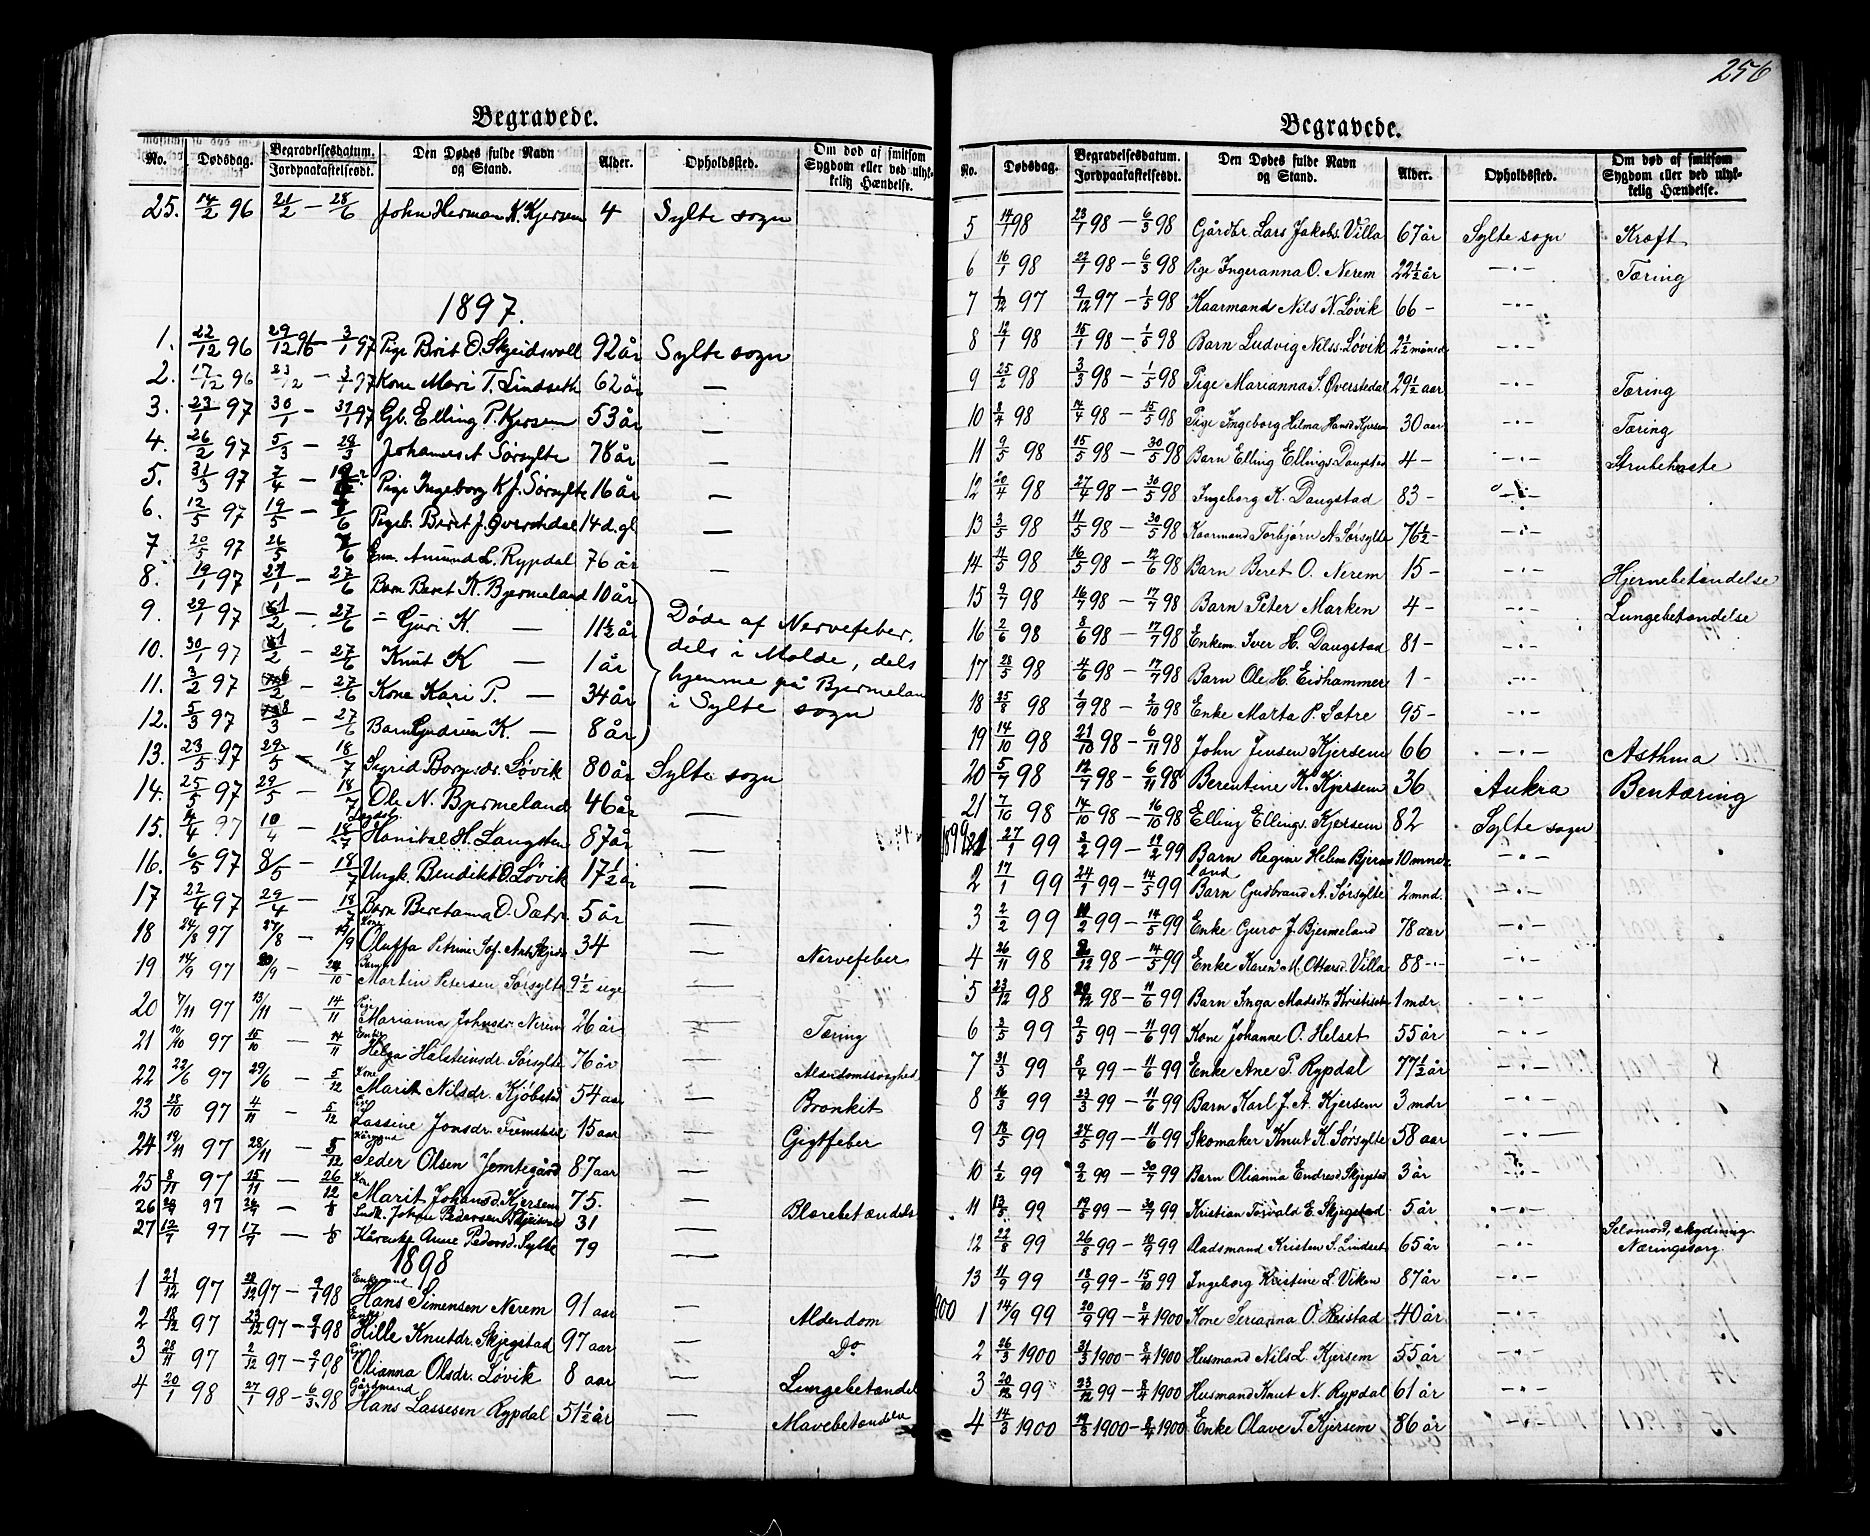 Begravede.
No. Dødsdag. Begravelsesdatum. Jordpaakastelsesdt. Den Dødes fulde Navn og Stand. Alder. Opholdssted. Om død af smitsom Sygdom eller ved ulykkelig Hændelse.
25. 14/2 96 21/2 – 28/6 John Herman K. Kjersem 4 Sylte sogn
1897.
1. 22/12 96 29/12 96 – 3/1 97 Pige Brit O. Skjeidsvoll 92 år Sylte sogn
2. 17/12 96 23/12 – 3/1 97 Kone Mari T. Lindseth 62 år —
3. 23/1 97 30/1 – 31/1 97 Gb. Elling P. Kjersem 53 år —
4. 26/2 97 5/3 – 29/3 Johannes A Sørsylte 78 år —
5. 31/3 97 7/4 – Pige Ingeborg K J. Sørsylte 16 år —
6. 12/5 97 19/5 – /6 Pigeb. Beret J. Øverstedal 14 d. gl —
7 20/5 97 26/5 /6 Em. Amund L. Rypdal 76 år —
8. 19/1 97 27/1 – 27/6 Barn Beret K. Bjermeland 10 år
9. 29/1 97 /2 – 27/6 = Guri K. — 11½ år Døde af Nervefeber,
10. 30/1 97 /2 – 27/6 Knut K — 1 år dels i Molde, dels
11. 3/2 97 /2 – 27/6 Kone Kari P. — 34 år hjemme på Bjermeland
12. 5/3 97 /3 – 27/6 Barn Gudrun K. — 8 år i Sylte sogn
13. 23/5 97 29/5 – 18/7 Sigrid Borgesdr. Løvik 80 år Sylte sogn
14. 25/5 97 29/5 – 18/7 Ole N. Bjermeland 46 år —
15. 4/4 97 10/4 – 18/7 Hanibal H. Langsten 87 år —
16. 6/5 97 8/5 – 18/7 Ungk. Bendikt O. Løvik 17½ år —
17 22/4 97 29/4 – 18/7 Barn Beretanna O. Sætre 5 år —
18 24/8 97 27/8 – /9 Kone Oluffa Petrine Sof. 34 — Nervefeber
19 14/9 97 /9 – /10 Barn Martin Petersen Sørsylte 9½ uge —
20 7/11 97 13/11 – 14/11 Pige Marianna Johnsdr. Nerem 26 år — Tæring
21 10/10 97 15/10 – 14/11 Enke Helga Halsteinsdr. Sørsylte 76 år — Alderdomssvaghed
22 22/6 97 29/6 – 5/12 Kone Marit Nilsdr. Kjøbstad 54 aar — Bronkit
23 28/10 97 4/11 – 5/12 Lassine Jonsdr. 15 aar — Gigtfeber
24 19/11 97 28/11 – 5/12 Kårmand Peder Olsen Jemtegård 87 aar —
25 8/11 97 15/11 – 26/12 Marit Johansd. Kjersem 75. — Blærebetændelse
26 97 – Johan Pedersen 31
27 12/7 97 17/7 – Kårenke Anne Pedersd. Sylte 79
1898
1 21/12 97 /12 97 – 9/1 98 Enkemand Hans Simensen Nerem 91 aar — Alderdom
2 18/12 97 23/12 97 – 9/1 98 Enke Hille Knutdr. Skjegstad 97 aar — Do
3 28/11 97 2/12 97 – 9/1 98 Olianna Olsdr. Løvik 8 aar — Lungebetændel
4 20/1 98 27/1 98 – 6/3 98 Gårdmand Hans Lassesen Rypdal 51½ år — Mavebetændelse
256
Begravede.
No. Dødsdag. Begravelsesdatum. Jordpaakastelsesdt. Den Dødes fulde Navn og Stand. Alder. Opholdssted. Om død af smitsom Sygdom eller ved ulykkelig Hændelse.
5 14/1 98 23/1 98 – 6/3 98 Gårdbr. Lars Jakobs. Villa 67 år Sylte sogn Kræft
6 16/1 98 22/1 98 – 6/3 98 Pige Ingeranna O. Nerem 22½ år —"— Tæring
7 1/12 97 9/12 97 – 1/5 98 Kaarmand Nils N. Løvik 66 – —"—
8 12/1 98 15/1 98 – 1/5 98 Barn Ludvig Nilss. Løvik 2½ måned —"—
9 25/2 98 3/3 98 – 1/5 98 Pige Marianna S. Øverstedal 29½ aar —"— Tæring
10 8/4 98 14/4 98 – 15/5 98 Pige Ingeborg Helma Hansd Kjersem 30 aar —"— Tæring
11 9/5 98 15/5 98 – 30/5 98 Barn Elling Ellings. Daugstad 4 – —"— Strubehoste
12 20/4 98 27/4 98 – 30/5 98 Ingeborg K. Daugstad 83 – —"—
13 3/5 98 11/5 98 – 30/5 98 Kaarmand Torbjørn A. Sørsylte 76½ – —"—
14 11/5 98 16/5 98 – 12/6 98 Barn Beret O. Nerem 15 – —"— Hjernebetændelse
15 9/7 98 16/7 98 – 17/7 98 Barn Peter Marken 4 – —"— Lungebetændelse
16 2/6 98 8/6 98 – 17/7 98 Enkem Iver H. Daugstad 81 – —"—
17 28/5 98 4/6 98 – 17/7 98 Barn Ole H. Eidhammer 1 – —"—
18 25/8 98 1/9 98 – 2/10 98 Enke Marta P. Sætre 95 – —"—
19 14/10 98 21/10 98 – 6/11 98 John Jensen Kjersem 66 —"— Asthma
20 5/7 98 12/7 98 – 6/11 98 Berentine K. Kjersem 36 Aukra Bentæring
21 7/10 98 14/10 98 – 16/10 98 Elling Ellings. Kjersem 82 Sylte sogn
1899 1 27/1 99 3/2 99 – 12/2 99 Barn Regine Helene Bjermeland 10 mndr —"—
2 17/1 99 24/1 99 – 14/5 99 Barn Gudbrand A. Sørsylte 2 mnd. —"—
3 2/2 99 /2 99 – 14/5 99 Enke Guro J. Bjermeland 78 aar —"—
4 26/11 98 /12 98 – 14/5 99 Enke Karen M. Ottersd. Villa 88 – —"—
5 23/12 98 29/12 98 – 11/6 99 Barn Inga Madsdtr. 1 mdr. —"—
6 3/5 99 9/5 99 – 11/6 99 Kone Johanne O. Helset 55 år —"—
7 31/3 99 8/4 99 – 11/6 99 Enke Ane P. Rypdal 77½ år —"—
8 16/3 99 23/3 99 – 11/6 99 Barn Karl J. A. Kjersem 3 mdr —"—
9 18/5 99 24/5 99 – 11/6 99 Skomaker Knut K. Sørsylte 58 aar —"—
10 1/2 99 9/2 99 – 30/7 99 Barn Olianna Endresd Skjegstad 3 år —"—
11 13/ 99 19/ 99 – 30/7 99 Kristian Tosvald E. Skjegstad 5 år —"—
12 22/8 99 26/8 99 – 10/9 99 Radsmand Kristen S. Lindset 65 år —"— Selvmord, skydning Næringssorg
13 11/9 99 18/9 99 – 15/10 99 Ingeborg Kristine L. Viken 87 år —"—
1900 1 14/9 99 20/9 99 – 8/4 1900 Kone Serianna O. 40 år —"—
2 26/3 1900 31/3 1900 – 8/4 1900 Husmand Nils L. Kjersem 55 år —"—
3 20/12 99 23/12 99 – 8/4 1900 Husmand Knut N. Rypdal 61 år —"—
4 14/3 1900 19/3 1900 – 8/4 1900 Enke Olave T. Kjersem 86 år —"—